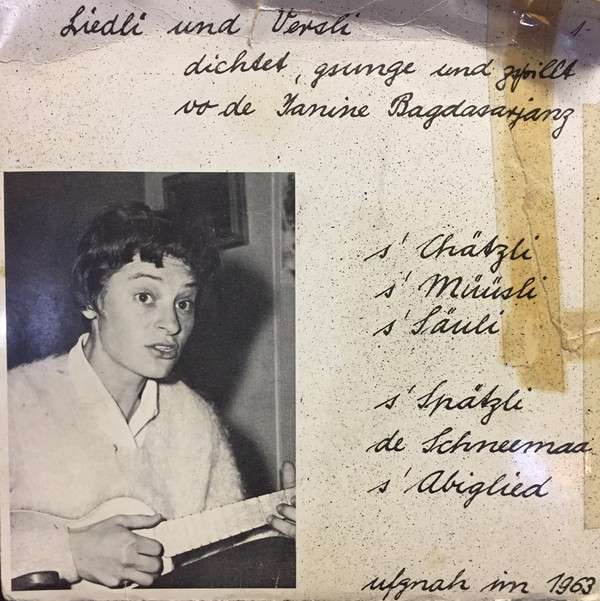 Liedli und Versli
1.
dichtet, gsunge und gspillt
vo de Janine Bagdasarjanz
s' Chätzli
s' Müüsli
s' Säuli
s' Spätzli
de Schneemaa
s' Abiglied
ufgnah im 1963